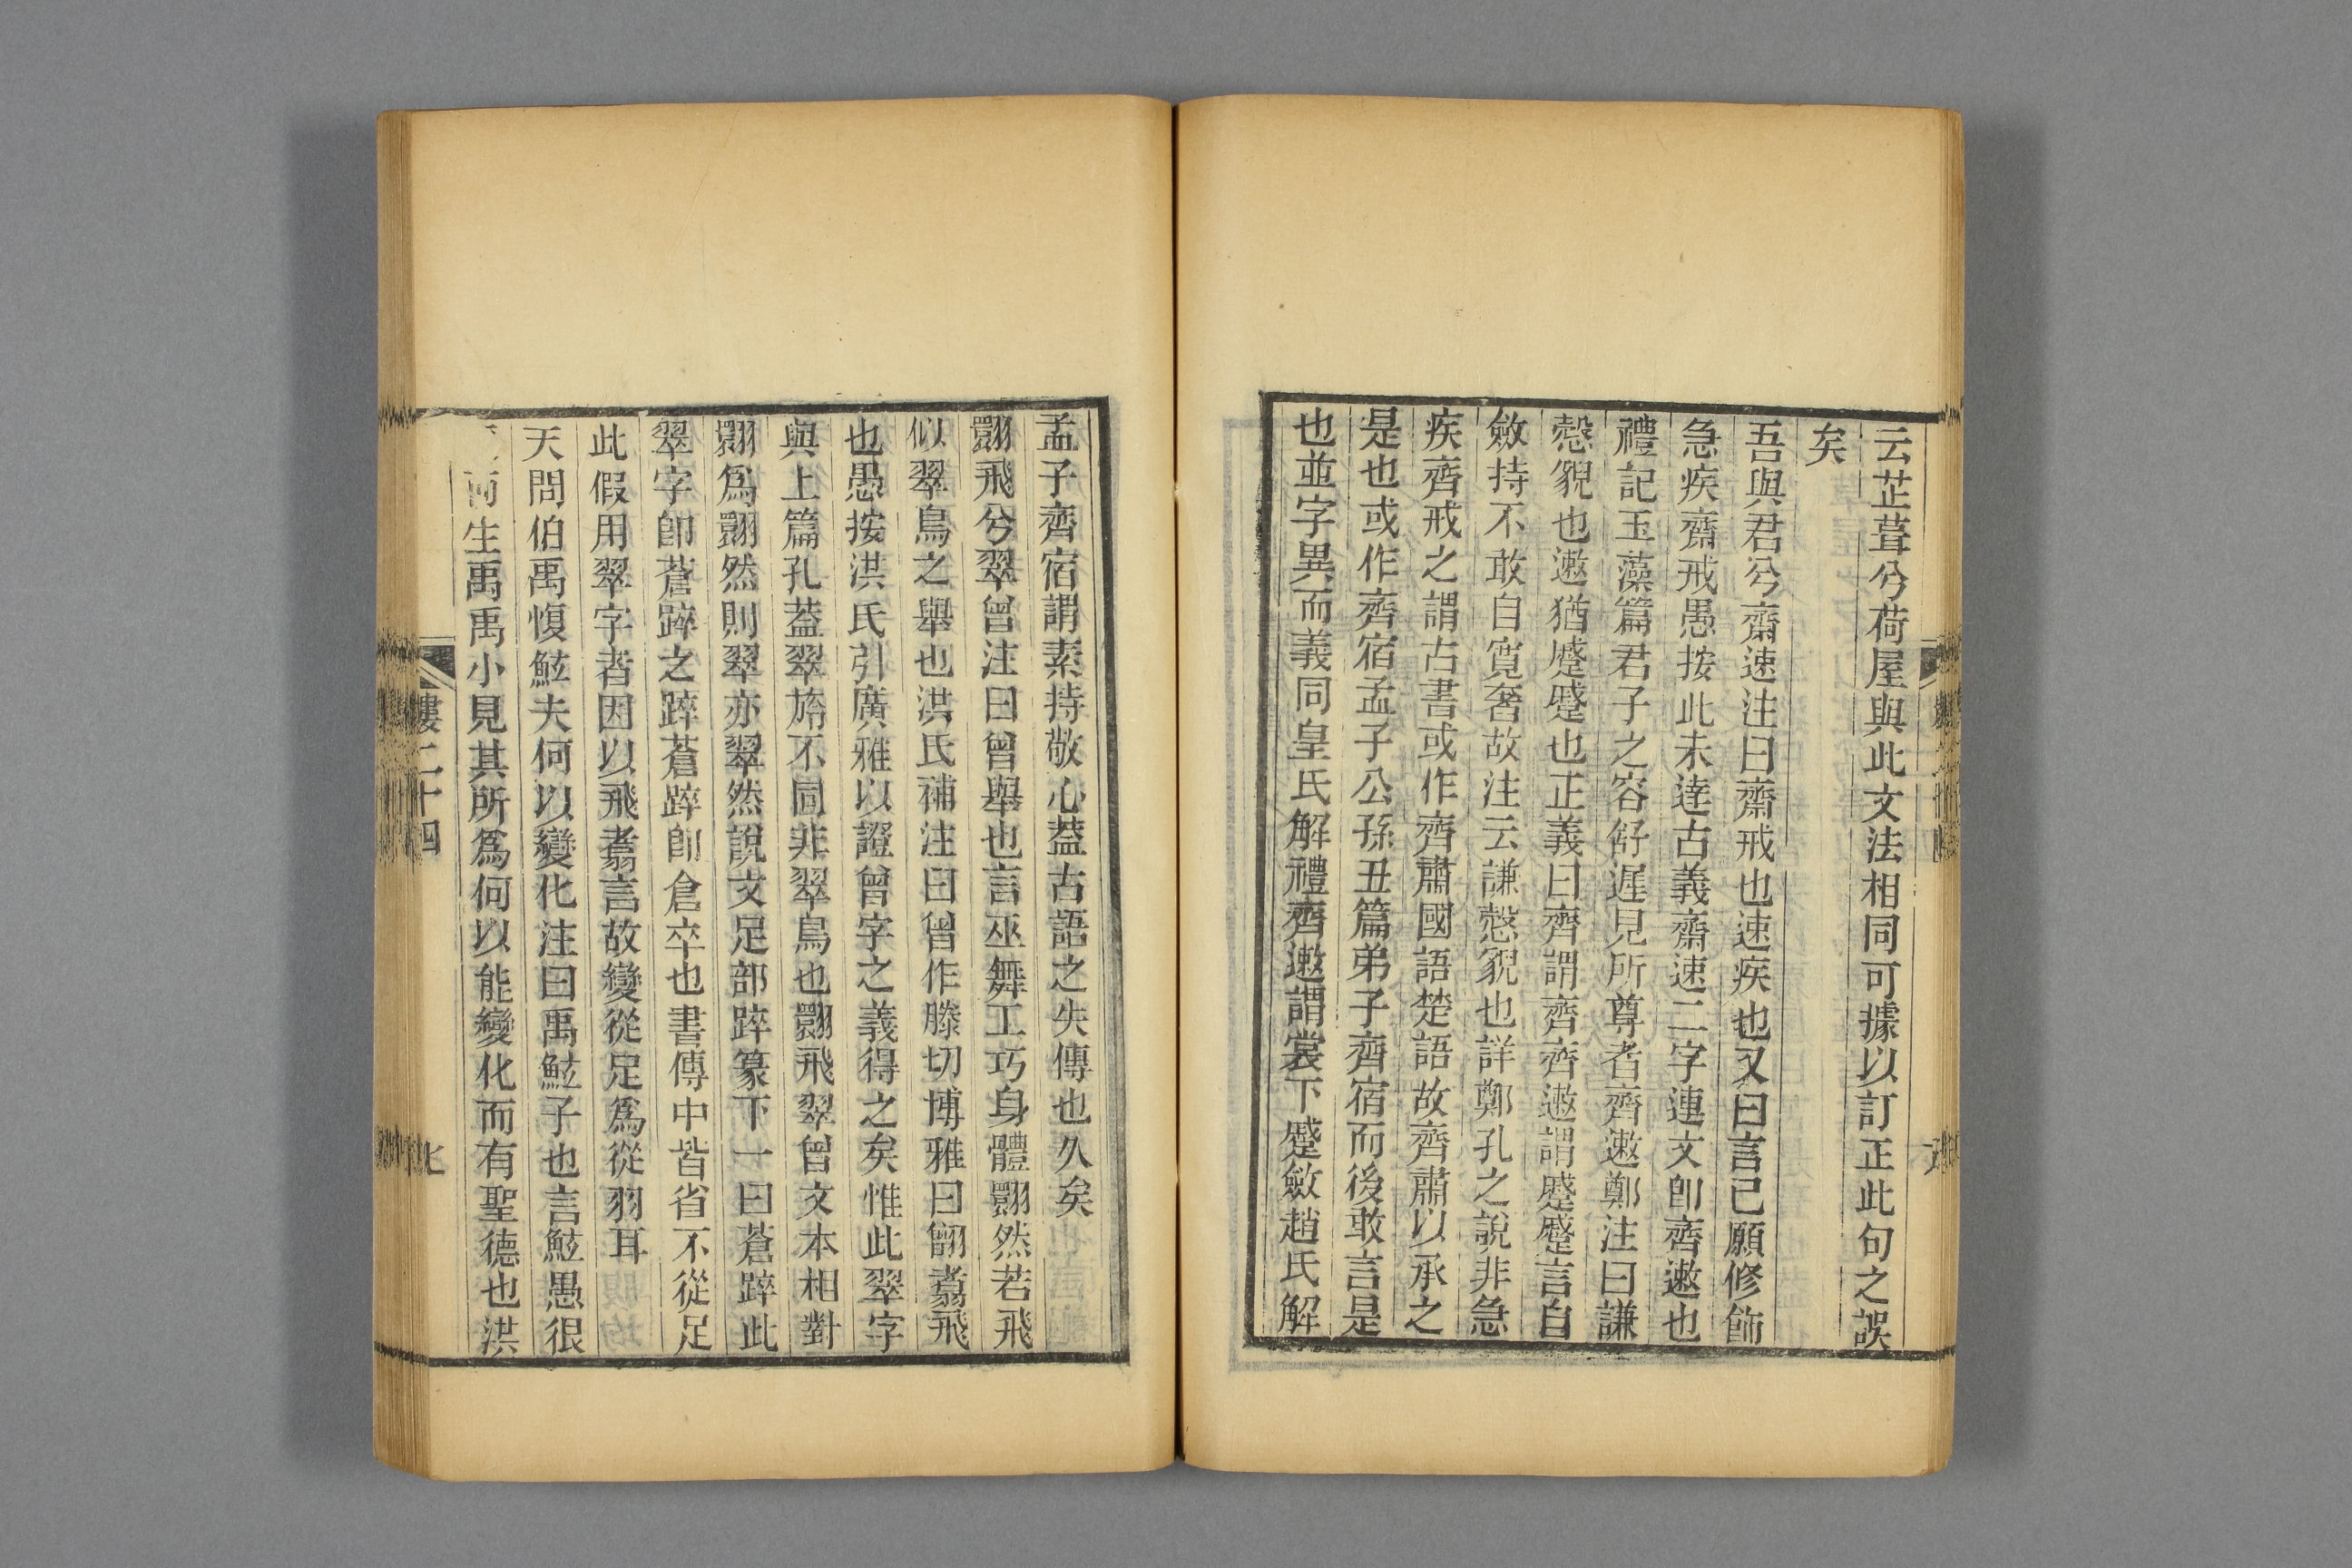 云芷葺兮荷屋與此文法相同可據以訂正此句之誤
矣
吾與君兮齋速注曰齋戒也速疾也又曰言己願修飾
急疾齋戒愚按此未達古義齋速二字連文卽齊遬也
禮記玉藻篇君子之容舒遲見所尊者齊遬鄭注曰謙
愨貌也遬猶蹙蹙也正義曰齊謂齊齊遬謂蹙蹙言自
斂持不敢自寬奢故注云謙愨貌也詳鄭孔之說非急
疾齊戒之謂古書或作齊肅國語楚語故齊肅以承之
是也或作齊宿孟子公孫丑篇弟子齊宿而後敢言是
也並字異而義同皇氏解禮齊遬謂裳下蹙斂趙氏解
孟子齊宿謂素持敬心葢古語之失傳也久矣
翾飛兮翠曾注曰曾舉也言巫舞工巧身體翾然若飛
似翠鳥之舉也洪氏補注曰曾作滕切博雅曰䎖翥飛
也愚按洪氏引廣雅以證曾字之義得之矣惟此翠字
與上篇孔葢翠旍不同非翠鳥也翾飛翠曾文本相對
翾爲翾然則翠亦翠然說文足部踤篆下一曰蒼踤此
翠字卽蒼踤之踤蒼踤卽倉卒也書傳中皆省不從足
此假用翠字者因以飛翥言故變從足爲從羽耳
天問伯禹愎鮌夫何以變化注曰禹鮌子也言鮌愚很
而生禹禹小見其所爲何以能變化而有聖德也洪
樓二十四